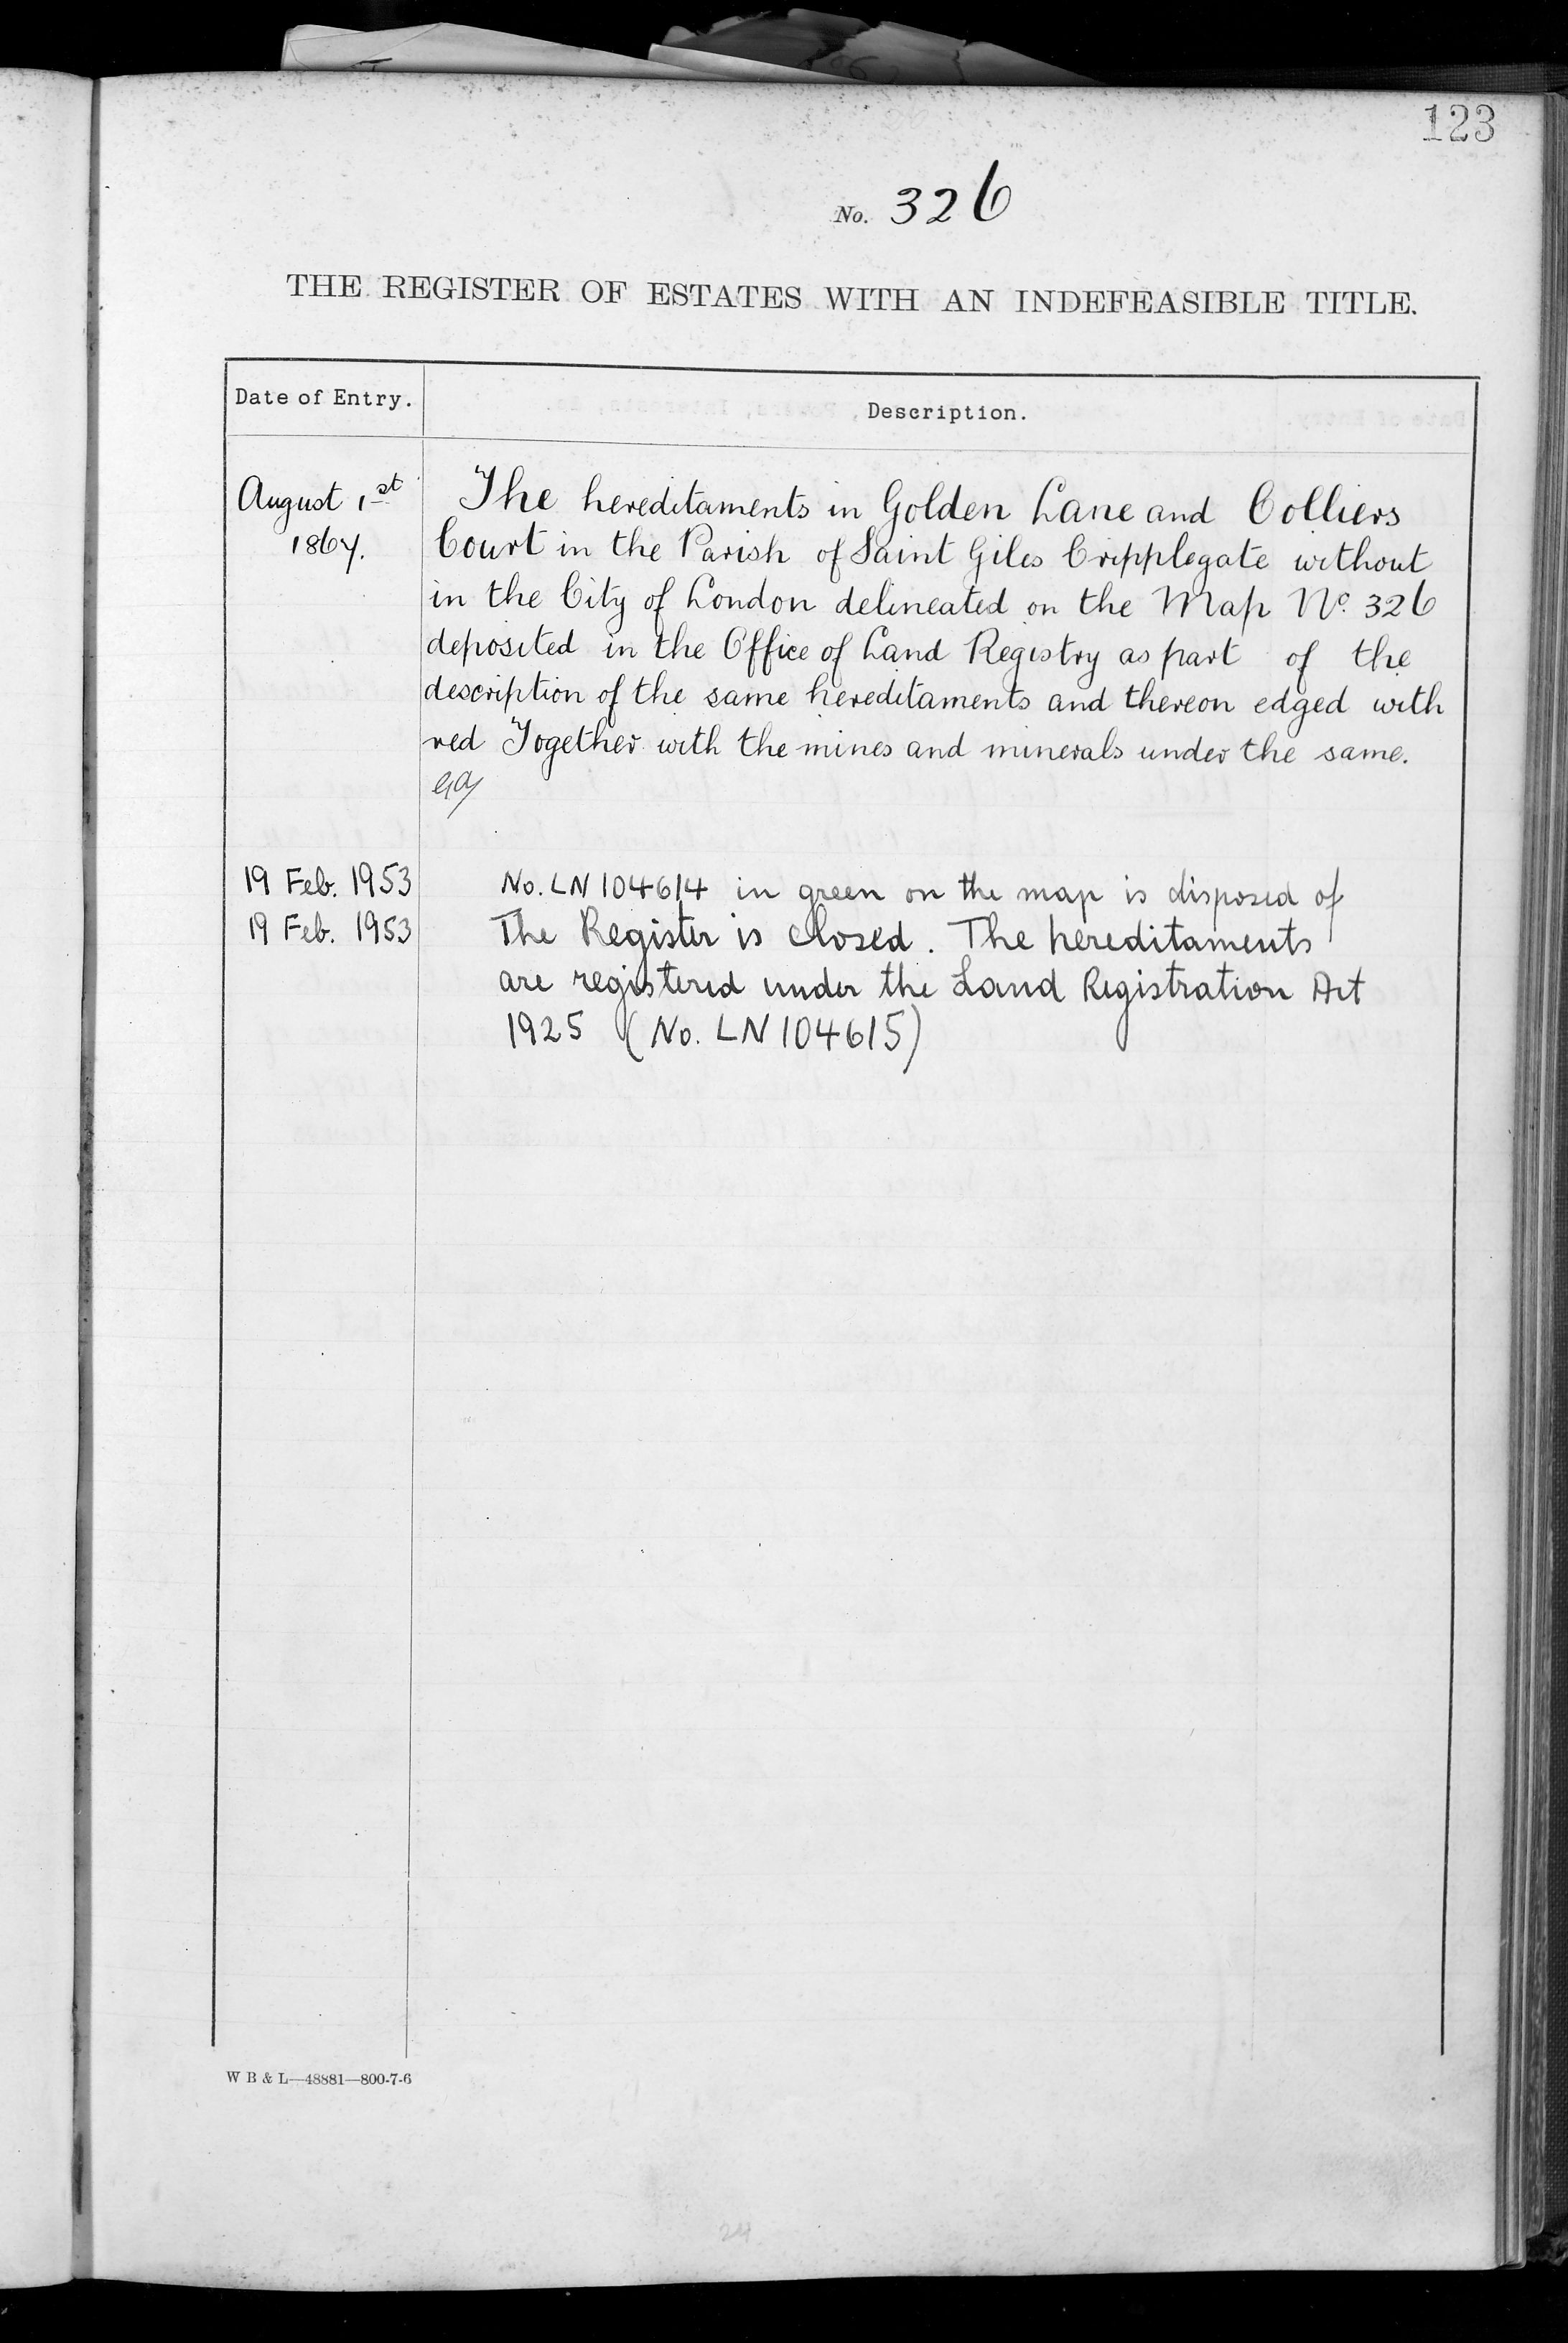 123
No. 326
THE REGISTER OF ESTATES WITH AN INDEFEASIBLE TITLE.
Date of Entry. Description.
August 1st The hereditaments in Golden Lane and Colliers
1867. Court in the Parish of Saint Giles Cripplegate without
in the City of London delineated on the Map No. 326
deposited in the Office of Land Registry as part of the
description of the same hereditaments and thereon edged with
red Together with the mines and minerals under the same.
19 Feb. 1953 No. LN 104614 in green on the map is disposed of
19 Feb. 1953 The Register is closed. The hereditaments
are registered under the Land Registration Act
1925 (No. LN 104615)
W B & L—48881—800-7-6
24